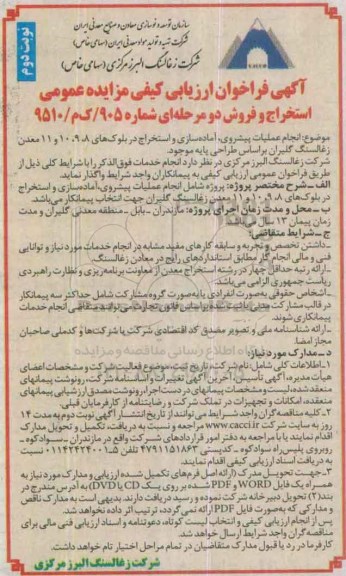 سازمان توسعه و نوسازی معادن و صنایع معدنی ایران
شرکت تهیه و تولید مواد معدنی ایران (سهامی خاص)
شرکت زغالسنگ البرز مرکزی (سهامی خاص)
نوبت دوم
آگهی فراخوان ارزیابی کیفی مزایده عمومی
استخراج و فروش دو مرحله‌ای شماره ۹۰۵/ک‌م/۹۵۱۰
موضوع: انجام عملیات پیشروی، آماده‌سازی و استخراج در بلوک‌های ۸، ۹، ۱۰ و ۱۱ معدن
زغالسنگ گلیران براساس طراحی پایه موجود.
شرکت زغالسنگ البرز مرکزی در نظر دارد انجام خدمات فوق‌الذکر را با شرایط کلی ذیل از
طریق فراخوان عمومی ارزیابی کیفی به پیمانکاران واجد شرایط واگذار نماید.
الف ـ شرح مختصر پروژه: پروژه شامل انجام عملیات پیشروی، آماده‌سازی و استخراج
در بلوک‌های ۸، ۹، ۱۰ و ۱۱ معدن زغالسنگ گلیران جهت انتخاب پیمانکار می‌باشد.
ب ـ محل و مدت زمان اجرای پروژه: مازندران ـ بابل ـ منطقه معدنی گلیران و مدت
زمان پیمان ۱۳ سال می‌باشد.
ج ـ شرایط متقاضی:
ـ داشتن تخصص و تجربه و سابقه کارهای مفید مشابه در انجام خدمات مورد نیاز و توانایی
فنی و مالی انجام کار مطابق استانداردهای رایج در معادن زغالسنگ.
ـ ارائه رتبه حداقل چهار در رشته استخراج معدن از معاونت برنامه‌ریزی و نظارت راهبردی
ریاست جمهوری الزامی می‌باشد.
ـ اشخاص حقوقی به‌صورت انفرادی یا به‌صورت گروه مشارکت شامل حداکثر سه پیمانکار
در قالب مشارکت مدنی براساس قانون تجارت می‌توانند متقاضی انجام خدمات
پیمانکاری شوند.
ـ ارائه شناسنامه ملی و تصویر مصدق کد اقتصادی شرکت یا شرکت‌ها و کدملی صاحبان
مجاز امضا.
د ـ مدارک مورد نیاز:
۱ـ اطلاعات کلی شامل نام شرکت، تاریخ ثبت، موضوع فعالیت شرکت و مشخصات اعضای
هیأت مدیره، آگهی تأسیس، آخرین آگهی تغییرات و اساسنامه شرکت، رونوشت پیمانهای
منعقد شده، لیست و مشخصات پیمانهای در دست اجرا، رونوشت مصدق ارزشیابی پیمانهای
منعقده، امکانات و تجهیزات در تملک شرکت و رضایتنامه از کارفرمایان قبلی.
۲ـ کلیه مناقصه‌گران واجد شرایط می‌توانند از تاریخ انتشار آگهی نوبت دوم به مدت ۱۴
روز به سایت شرکت www.cacci.ir مراجعه و نسبت به دریافت، تکمیل و تحویل مدارک
اقدام نمایند یا با مراجعه به دفتر امور قراردادهای شرکت واقع در مازندران ـ سوادکوه ـ
روبروی پلیس راه سوادکوه ـ کدپستی ۴۷۹۱۱۵۱۸۶۳ تلفن ۵ـ۰۱۱۴۲۴۴۲۰۰۱ نسبت
به دریافت اسناد ارزیابی کیفی اقدام نمایند.
۳ـ جهت تحویل مدرک (ارائه اصل فرم‌های تکمیل شده ارزیابی و مدارک مورد نیاز به
همراه یک فایل WORD و PDF شده بر روی یک CD یا DVD) به آدرس مندرج در
بند (۲) تحویل دبیرخانه شرکت نموده و رسید دریافت دارند. بدیهی است به مدارک ناقص
و مدارکی که به‌صورت فایل PDF ارائه نمی‌گردد، ترتیب اثر داده نخواهد شد.
پس از انجام ارزیابی کیفی و انتخاب لیست کوتاه، دعوتنامه و اسناد ارزیابی فنی مالی برای
مناقصه‌گران واجد شرایط ارسال خواهد شد.
کارفرما در رد یا قبول مدارک متقاضیان در تمام مراحل اختیار تام خواهد داشت.
شرکت زغالسنگ البرز مرکزی